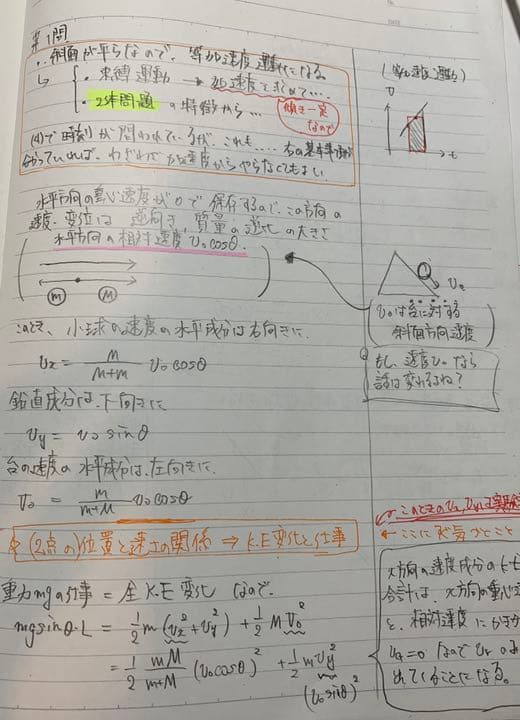 第1問
∴ 斜面が平らなので、等加速度運動になる
↳ { ・束縛運動 → 加速度を求めて…
・2体問題 の特徴から…
傾き一定なので
(4)で時刻が問われているが、これも…右の基本準備が
分かっていれば、わざわざ加速度からやらなくてもよい
(等加速度運動)
v
t
水平方向の重心速度が0で保存するので、この方向の
速度・変位は逆向き、質量の逆比の大きさ
水平方向の相対速度 v₀cosθ.
m M
v₀
(v₀は台に対する
斜面方向速度)
もし、速度v₀なら
話は変わるよね?
このとき、小球の速度の水平成分は右向きに、
vx = M/(M+m) v₀cosθ
鉛直成分は、下向きに
vy = v₀ sinθ
台の速度の水平成分は、左向きに、
V₀ = m/(m+M) v₀cosθ
(2点の)位置と速さの関係 ⇒ K.E変化と仕事
← ここに気づくこと
重力mgの仕事 = 全K.E変化 なので、
mg sinθ・L = ½m(vx² + vy²) + ½MV₀²
= ½ mM/(m+M) (v₀cosθ)² + ½mvy²
(v₀sinθ)²
x方向の速度成分の
合計は、x方向の重心
と、相対速度に
なので
れていることになる。